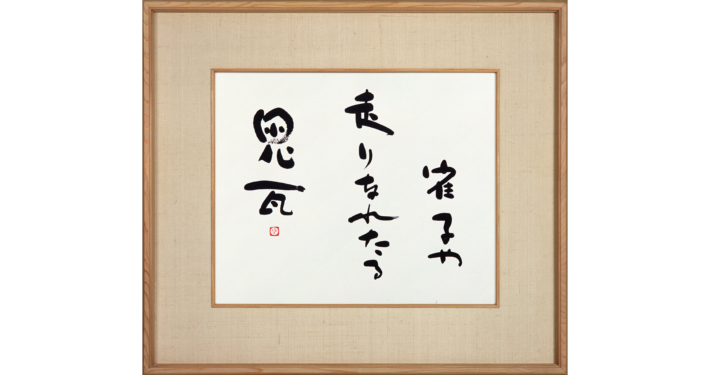 雀子や
走りなれたる
鬼瓦